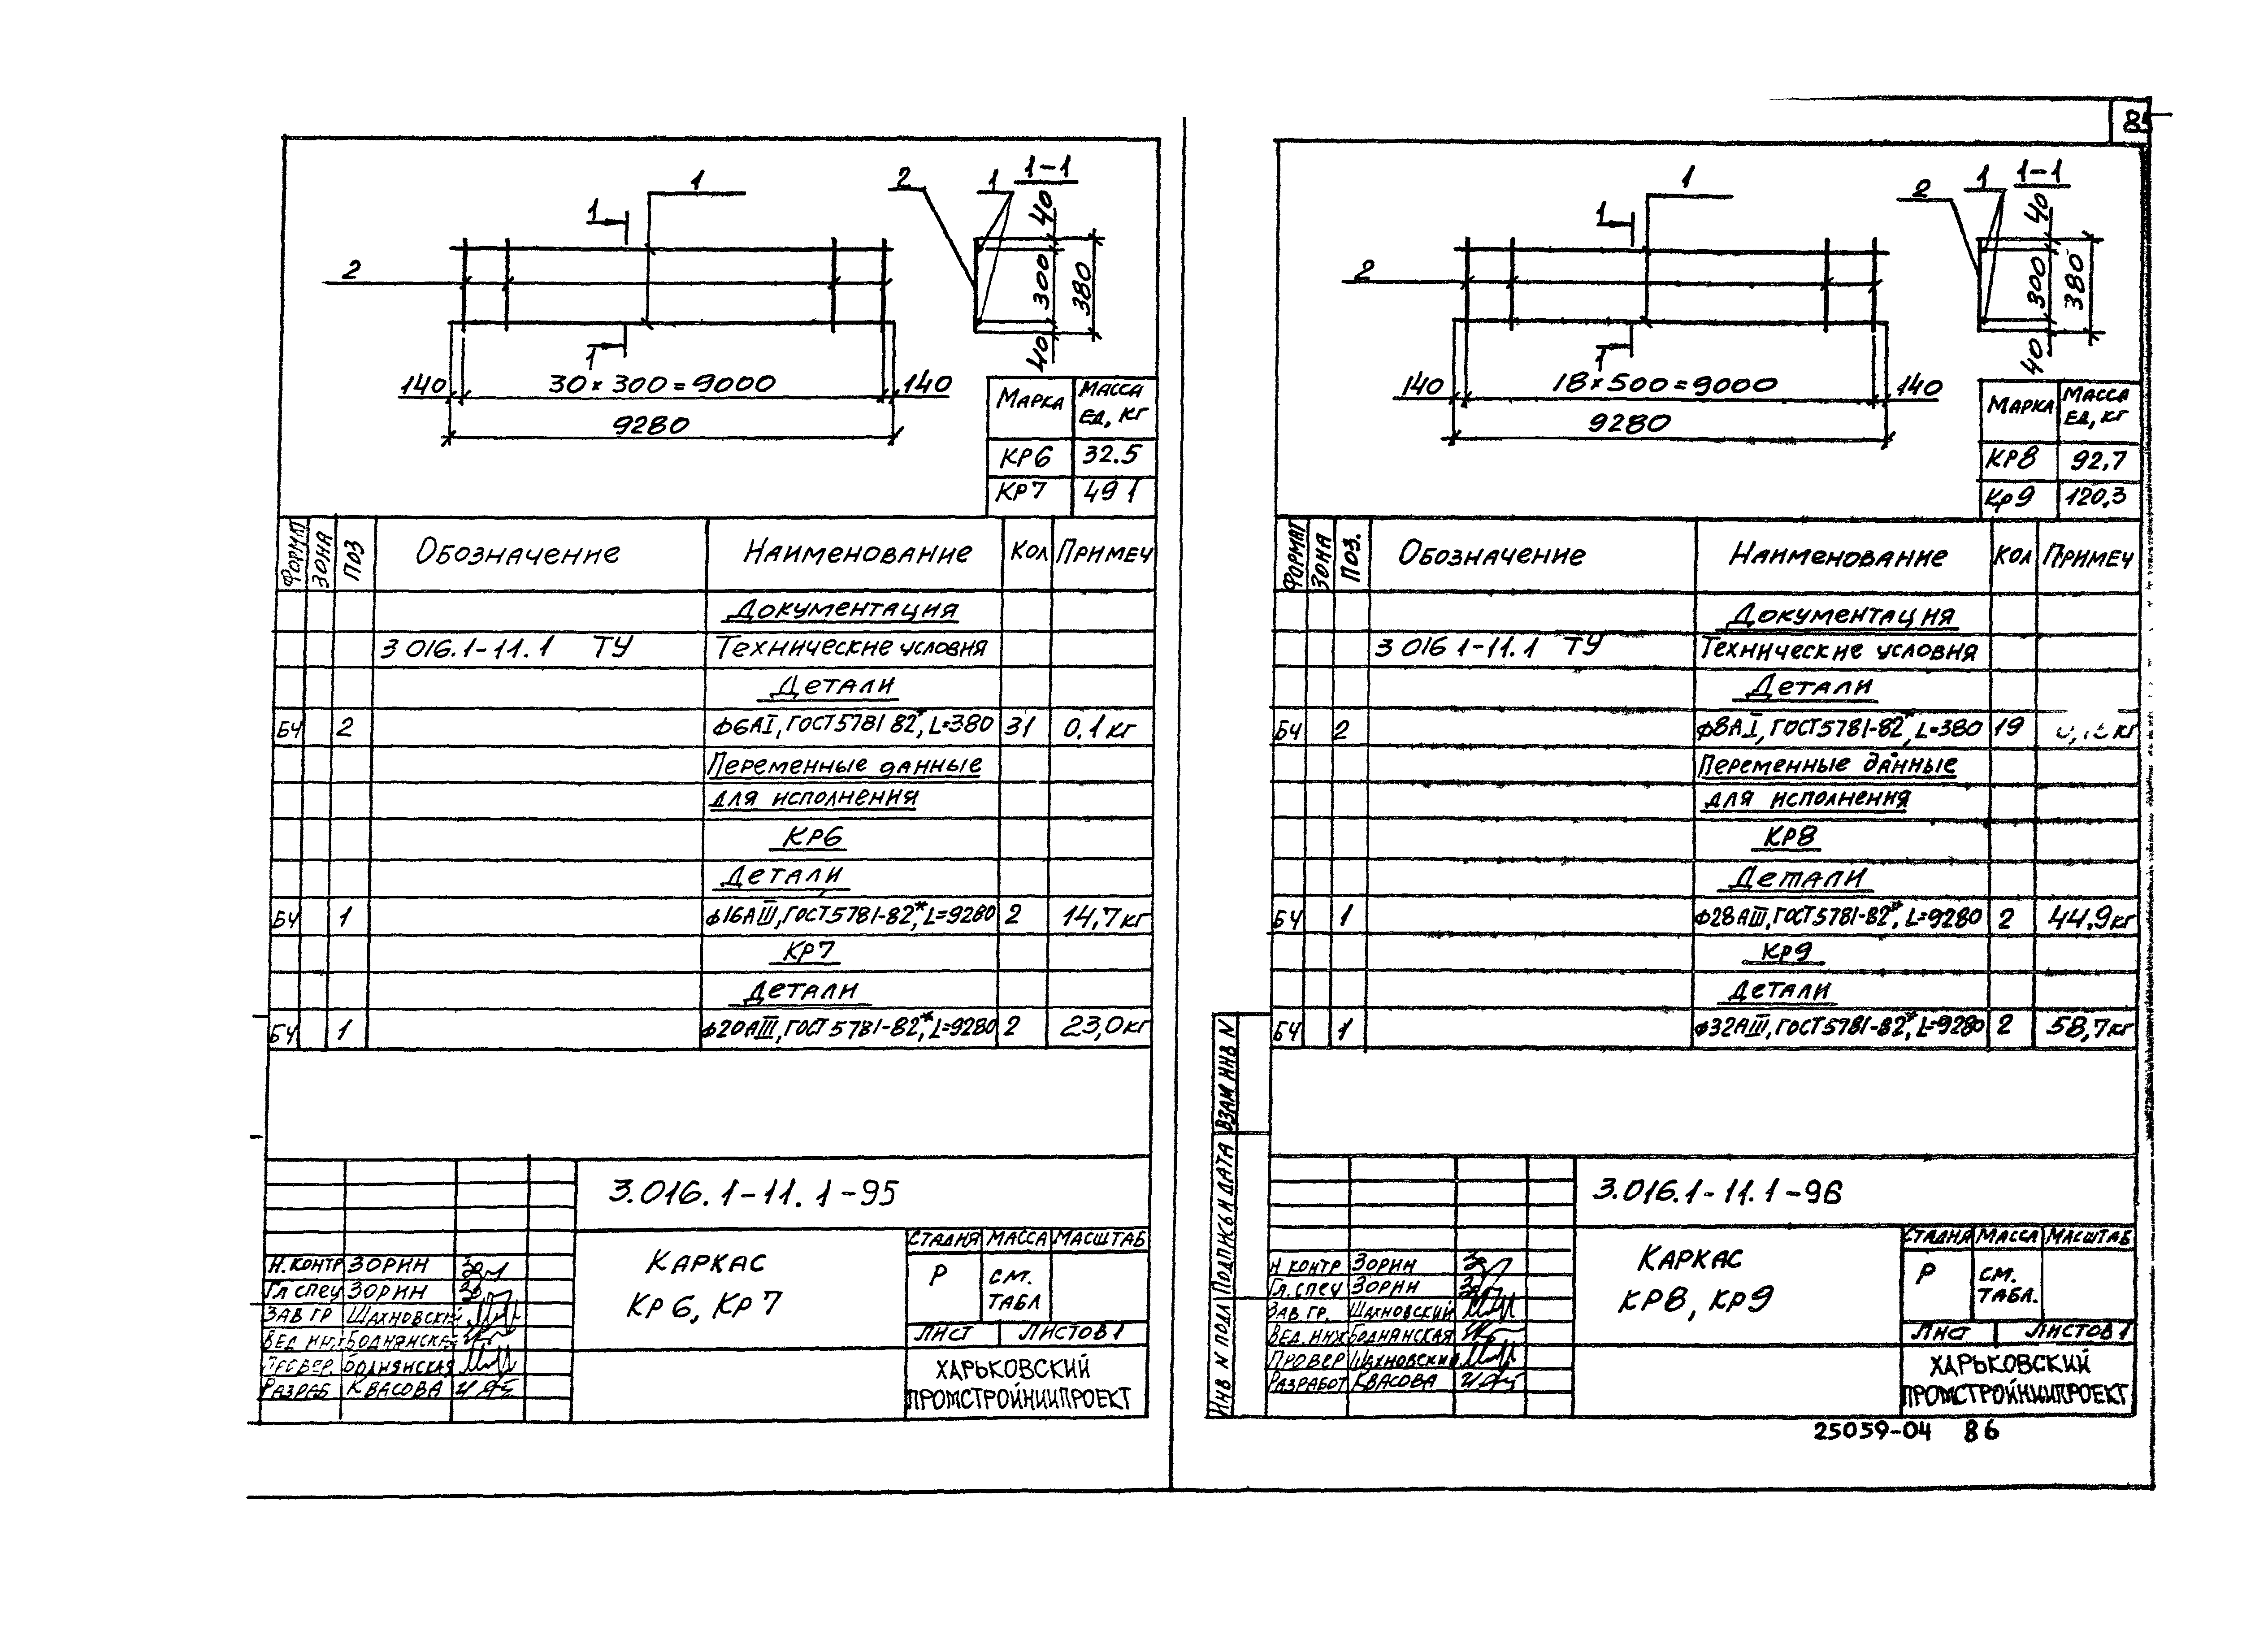 85
1
1
2
1
140
30 x 300 = 9000
140
9280
2
1
1-1
40
300
380
40
МАРКА МАССА ЕД, КГ
КР6 32.5
КР7 49 1
ФОРМАТ ЗОНА ПОЗ ОБОЗНАЧЕНИЕ НАИМЕНОВАНИЕ КОЛ ПРИМЕЧ
ДОКУМЕНТАЦИЯ
3 016.1-11.1 ТУ ТЕХНИЧЕСКИЕ УСЛОВИЯ
ДЕТАЛИ
БЧ 2 ф6АI, ГОСТ 5781 82*, L=380 31 0.1 кг
ПЕРЕМЕННЫЕ ДАННЫЕ
ДЛЯ ИСПОЛНЕНИЯ
КР6
ДЕТАЛИ
БЧ 1 ф16АIII, ГОСТ 5781-82*, L=9280 2 14,7 кг
КР7
ДЕТАЛИ
БЧ 1 ф20АIII, ГОСТ 5781-82*, L=9280 2 23,0 кг
3.016.1-11.1-95
КАРКАС
КР6, КР7
СТАДИЯ МАССА МАСШТАБ
Р СМ. ТАБЛ
ЛИСТ ЛИСТОВ 1
ХАРЬКОВСКИЙ
ПРОМСТРОЙНИИПРОЕКТ
Н.КОНТР ЗОРИН
ГЛ СПЕЦ ЗОРИН
ЗАВ ГР ШАХНОВСКИЙ
ВЕД ИНЖ БОДНЯНСКАЯ
ПРОВЕР. БОДНЯНСКАЯ
РАЗРАБ КВАСОВА
1
1
2
1
140
18 x 500 = 9000
140
9280
2
1
1-1
40
300
380
40
МАРКА МАССА ЕД, КГ
КР8 92,7
КР9 120,3
ФОРМАТ ЗОНА ПОЗ. ОБОЗНАЧЕНИЕ НАИМЕНОВАНИЕ КОЛ ПРИМЕЧ
ДОКУМЕНТАЦИЯ
3 016 1-11.1 ТУ ТЕХНИЧЕСКИЕ УСЛОВИЯ
ДЕТАЛИ
БЧ 2 ф8АI, ГОСТ 5781-82*, L=380 19 кг
ПЕРЕМЕННЫЕ ДАННЫЕ
ДЛЯ ИСПОЛНЕНИЯ
КР8
ДЕТАЛИ
БЧ 1 ф28АIII, ГОСТ 5781-82*, L=9280 2 44,9 кг
КР9
ДЕТАЛИ
БЧ 1 ф32АIII, ГОСТ 5781-82*, L=9280 2 58,7 кг
ВЗАМ ИНВ N
ПОДПИСЬ И ДАТА
ИНВ N ПОДЛ
3.016.1-11.1-96
КАРКАС
КР8, КР9
СТАДИЯ МАССА МАСШТАБ
Р СМ. ТАБЛ.
ЛИСТ ЛИСТОВ 1
ХАРЬКОВСКИЙ
ПРОМСТРОЙНИИПРОЕКТ
Н КОНТР ЗОРИН
ГЛ. СПЕЦ ЗОРИН
ЗАВ ГР. ШАХНОВСКИЙ
ВЕД. ИНЖ БОДНЯНСКАЯ
ПРОВЕР ШАХНОВСКИЙ
РАЗРАБОТ КВАСОВА
25059-04 86